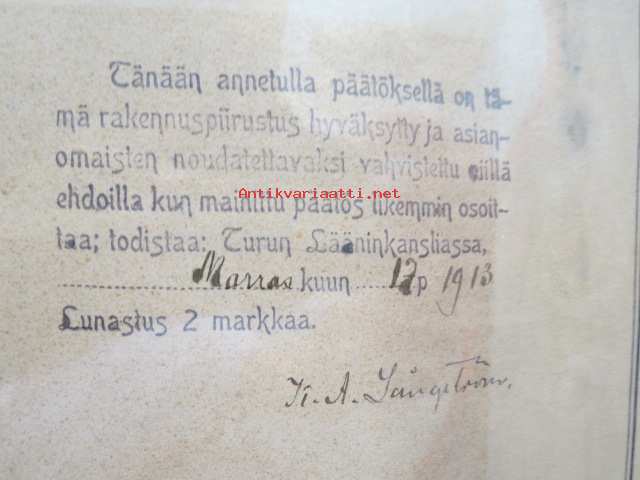 Tänään annetulla päätöksellä on tä-
mä rakennuspiirustus hyväksytty ja asian-
omaisten noudatettavaksi vahvistettu niillä
Antikvariaatti.net
ehdoilla kun mainittu päätös likemmin osoit-
taa; todistaa: Turun Lääninkansliassa,
Marraskuun 12 p 1913
Lunastus 2 markkaa.
K. A. Långström.